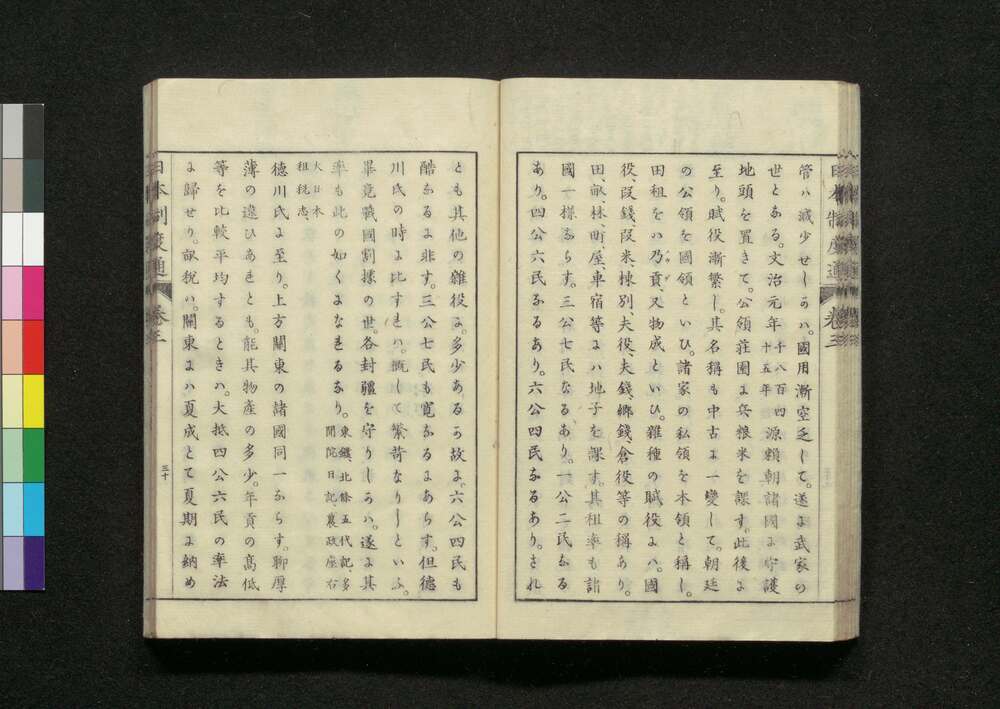 日本制度通 卷三
管ハ減少せしかハ。國用漸空乏して。遂に武家の
世となる。文治元年千八百四十五年源賴朝諸國に守護
地頭を置きて。公領莊園に兵粮米を課す。此後に
至り。賦役漸繁し。其名稱も中古に一變して。朝廷
の公領を國領といひ。諸家の私領を本領と稱し。
田租をハ乃貢、又物成といひ。雜種の賦役にハ。國
役、段錢、段米、棟別、夫役、夫錢、鄉錢、倉役等の稱あり。
田、畝、林、町、屋、車宿等にハ地子を課す。其租率も諸
國一樣ならす。三公七民なるあり。一公二民なる
あり。四公六民なるあり。六公四民なるあり。され
とも其他の雜役に。多少あるか故に。六公四民も
酷なるに非す。三公七民も寬なるにあらす。但德
川氏の時に比すれハ。概して繁苛なりしといふ。
畢竟戰國割據の世。各封疆を守りしかハ。遂に其
率も此の如くになれるなり。東鑑、北條五代記、多聞院日記、農政座右
大日本租稅志、
德川氏に至り。上方關東の諸國同一ならす。聊厚
薄の違ひあれとも。能其物產の多少。年貢の高低
等を比較平均するときハ。大抵四公六民の率法
に歸せり。畝稅ハ。關東にハ夏成とて夏期に納め
日本制度通 卷三
三十